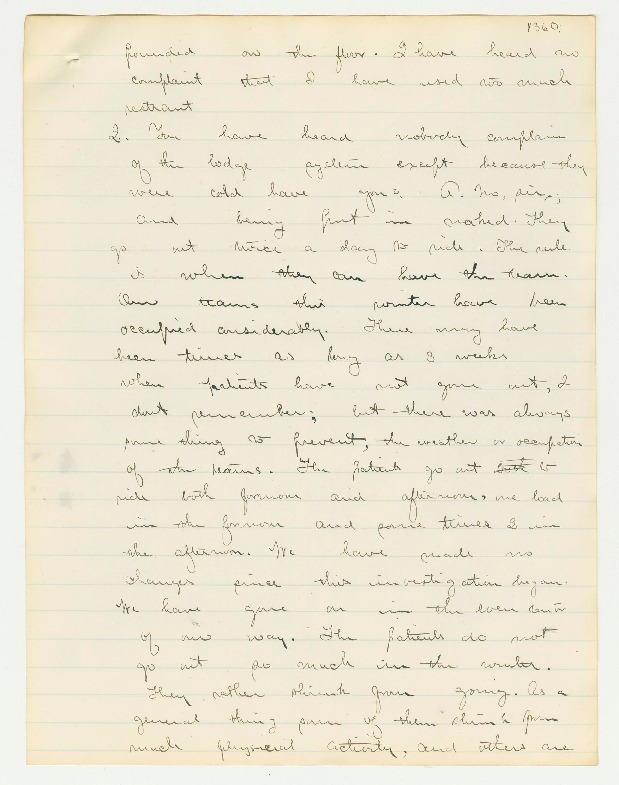 1360.
pounded on the floor. I have heard no
complaint that I have used too much
restraint
Q. You have heard nobody complain
of the lodge system except because they
were cold have you? A. No, sir,;
and being put in naked. They
go out twice a day to ride. The rule
is when they can have the team.
Our teams this winter have been
occupied considerably. There may have
been times as long as 3 weeks
when patients have not gone out, I
dont remember; but there was always
some thing to prevent, the weather or occupation
of the teams. The patients go out both to
ride both forenoon and afternoon, one load
in the forenoon and some times 2 in
the afternoon. We have made no
changes since this investigation began.
We have gone on in the even
of our way. The patients do not
go out so much in the winter.
They rather shrink from going. As a
general thing some of them shrink from
much physical activity, and others are